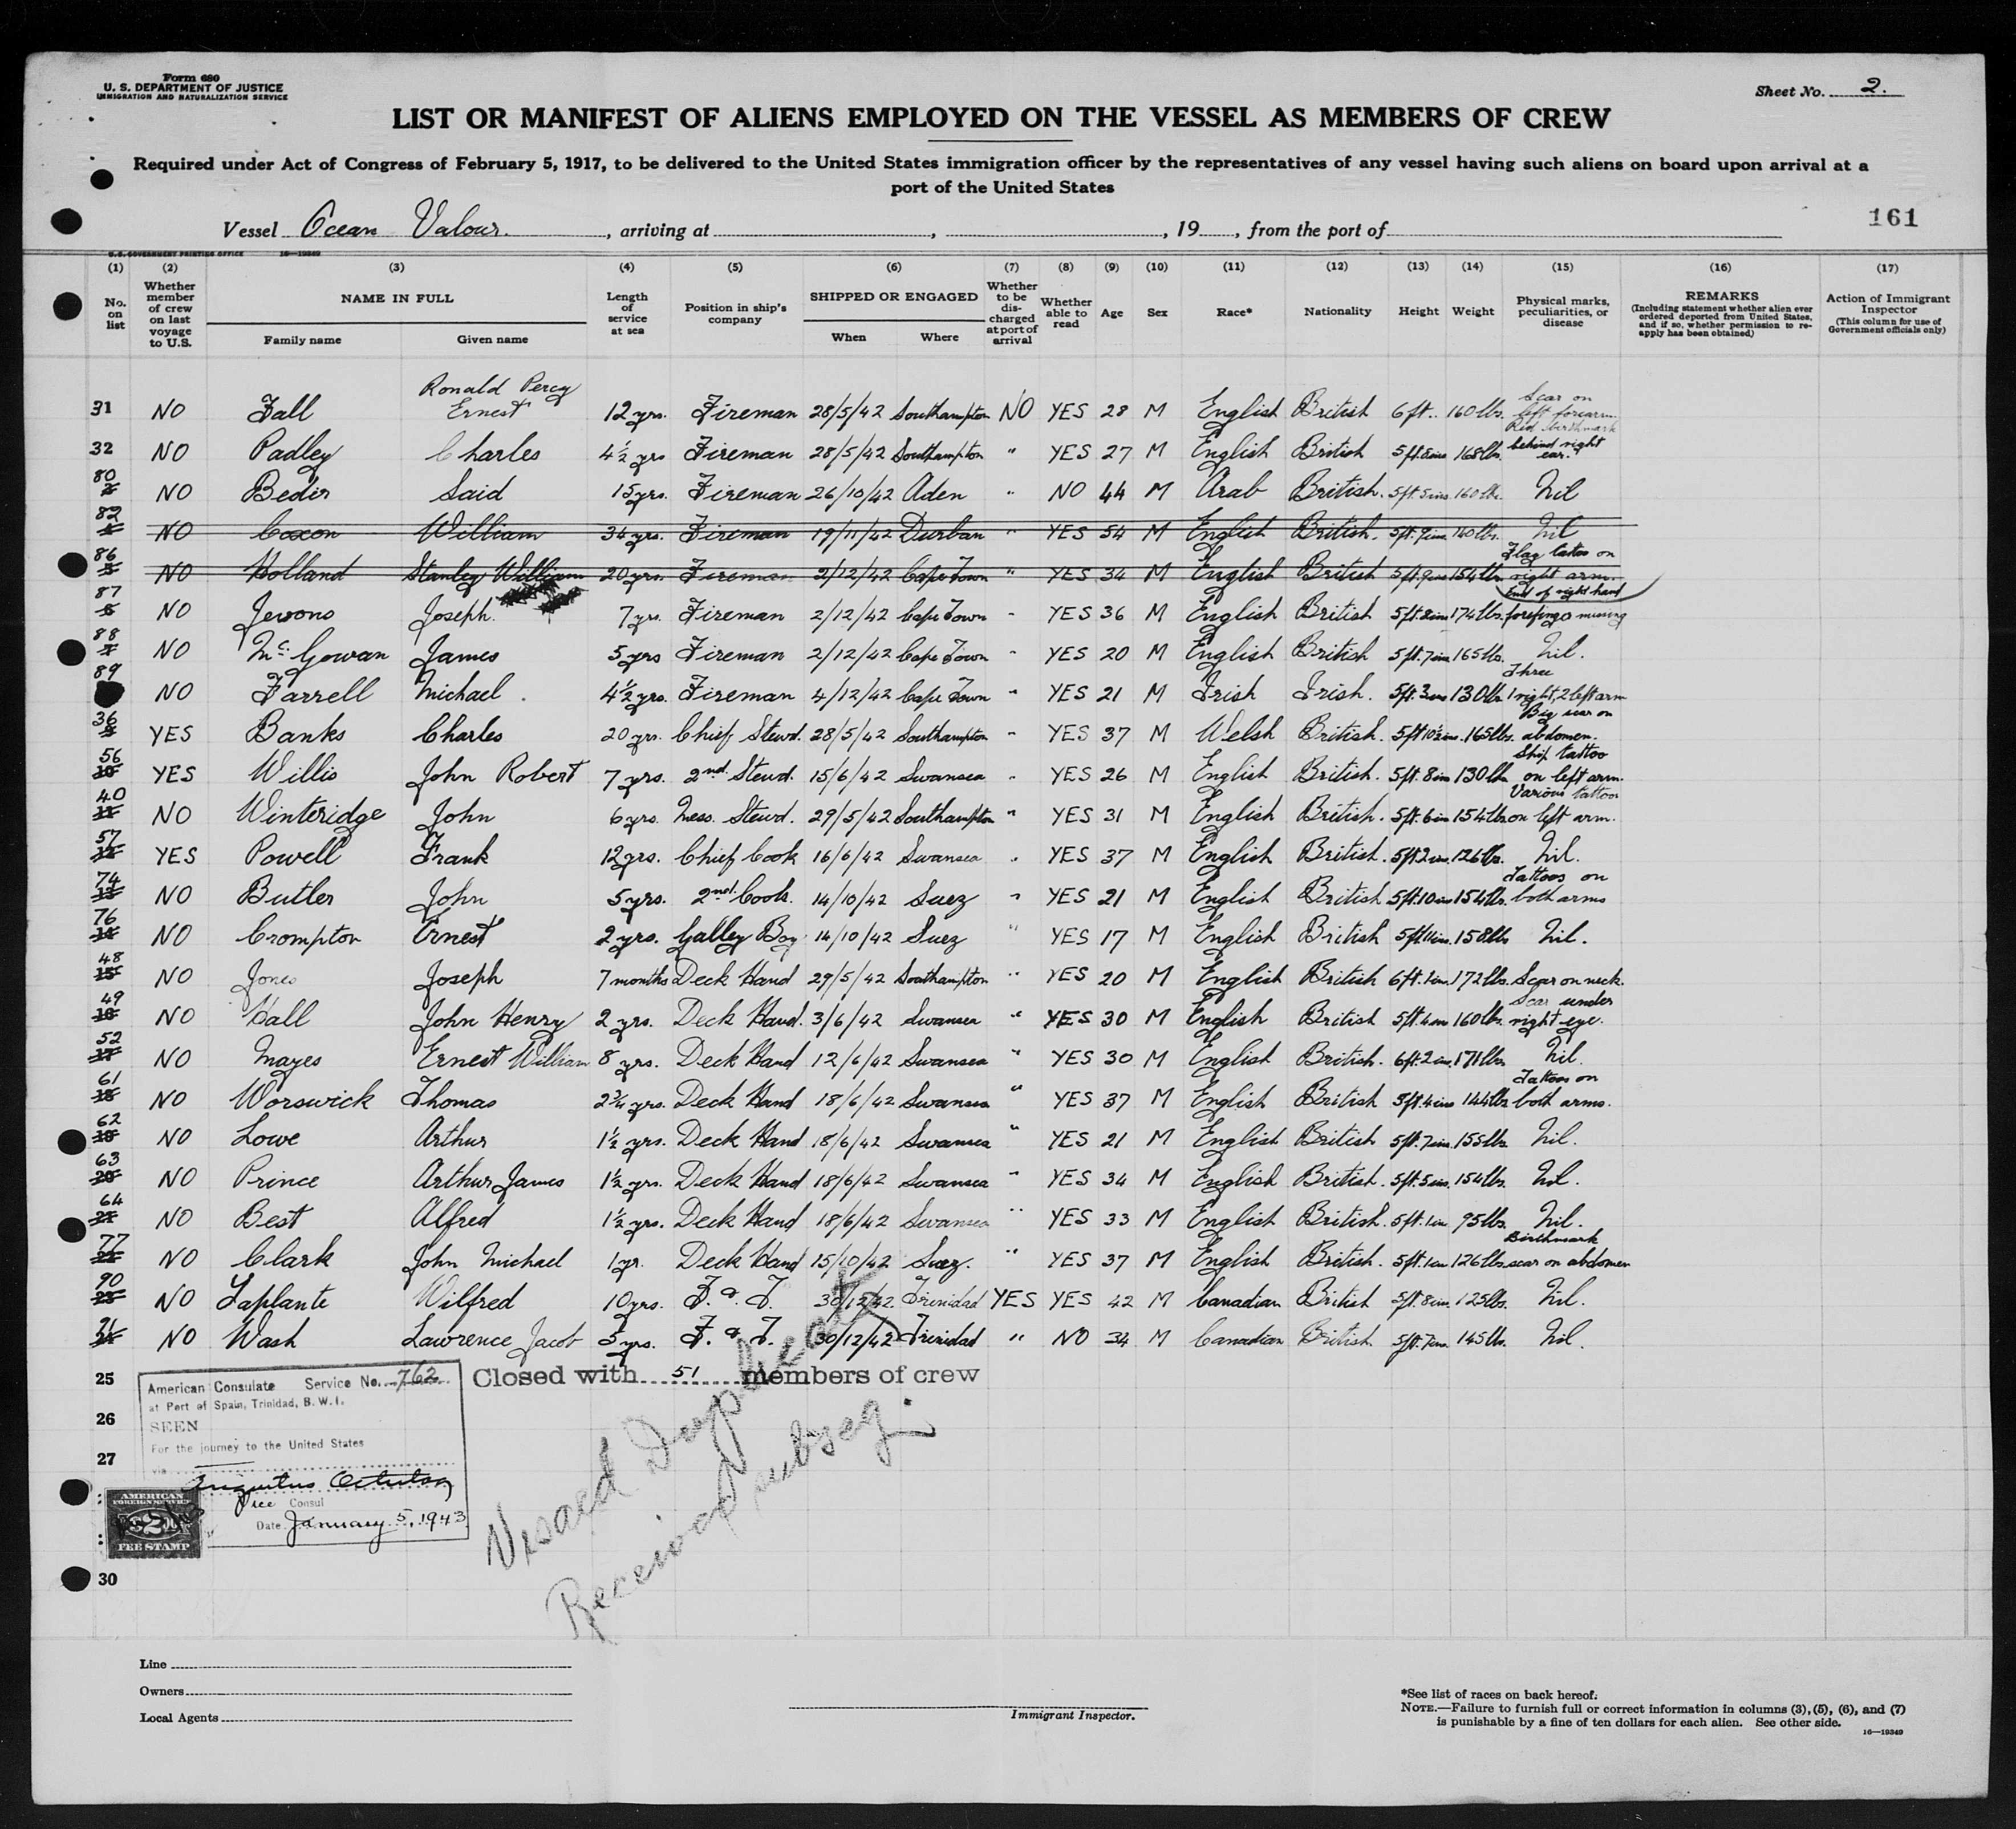 Form 680
U. S. DEPARTMENT OF JUSTICE
IMMIGRATION AND NATURALIZATION SERVICE
Sheet No. 2.
LIST OR MANIFEST OF ALIENS EMPLOYED ON THE VESSEL AS MEMBERS OF CREW
Required under Act of Congress of February 5, 1917, to be delivered to the United States immigration officer by the representatives of any vessel having such aliens on board upon arrival at a
port of the United States
161
Vessel Ocean Valour. , arriving at , , 19 , from the port of
U.S. GOVERNMENT PRINTING OFFICE 16—19349
(1) (2) (3) (4) (5) (6) (7) (8) (9) (10) (11) (12) (13) (14) (15) (16) (17)
No. on list
Whether member of crew on last voyage to U.S.
NAME IN FULL
Family name
Given name
Length of service at sea
Position in ship's company
SHIPPED OR ENGAGED
When
Where
Whether to be discharged at port of arrival
Whether able to read
Age
Sex
Race*
Nationality
Height
Weight
Physical marks, peculiarities, or disease
REMARKS
(Including statement whether alien ever ordered deported from United States, and if so, whether permission to reapply has been obtained)
Action of Immigrant Inspector
(This column for use of Government officials only)
31 NO Fall Ronald Percy Ernest 12 yrs. Fireman 28/5/42 Southampton NO YES 28 M English British 6 ft. 160 lbs. Scar on left forearm.
32 NO Padley Charles 4½ yrs Fireman 28/5/42 Southampton " YES 27 M English British 5 ft. 8 ins 168 lbs. Red birthmark behind right ear.
80 NO Bedir Said 15 yrs. Fireman 26/10/42 Aden " NO 44 M Arab British. 5 ft. 5 ins. 160 lbs. Nil
82 NO Coxon William 34 yrs. Fireman 19/11/42 Durban " YES 54 M English British. 5 ft. 9 ins. 140 lbs. Nil
86 NO Holland Stanley William 20 yrs. Fireman 2/12/42 Cape Town " YES 34 M English British 5 ft. 9 ins 154 lbs Flag tattoo on right arm.
87 NO Jevons Joseph. 7 yrs. Fireman 2/12/42 Cape Town " YES 36 M English British 5 ft. 8 ins 174 lbs. End of right hand forefinger missing
88 NO McGowan James 5 yrs Fireman 2/12/42 Cape Town " YES 20 M English British 5 ft. 7 ins 165 lbs. Nil.
89 NO Farrell Michael. 4½ yrs. Fireman 4/12/42 Cape Town " YES 21 M Irish Irish. 5 ft. 3 ins 130 lbs Three 1 right, 2 left arm
36 YES Banks Charles 20 yrs. Chief Stewd. 28/5/42 Southampton " YES 37 M Welsh British. 5 ft 10½ ins. 165 lbs. Big scar on abdomen.
56 YES Willis John Robert 7 yrs. 2nd. Stewd. 15/6/42 Swansea " YES 26 M English British. 5 ft. 8 ins 130 lbs Ship tattoo on left arm.
40 NO Winteridge John 6 yrs. Mess. Stewd. 29/5/42 Southampton " YES 31 M English British. 5 ft. 6 ins 154 lbs Various tattoos on left arm.
57 YES Powell Frank 12 yrs. Chief Cook 16/6/42 Swansea " YES 37 M English British. 5 ft 2 ins. 126 lbs. Nil.
74 NO Butler John 5 yrs. 2nd. Cook. 14/10/42 Suez " YES 21 M English British 5 ft. 10 ins 154 lbs. Tattoos on both arms
76 NO Crompton Ernest 2 yrs. Galley Boy 14/10/42 Suez " YES 17 M English British 5 ft. 11 ins. 158 lbs Nil.
48 NO Jones Joseph 7 months Deck Hand 29/5/42 Southampton " YES 20 M English British 6 ft. 1 ins. 172 lbs. Scar on neck.
49 NO Hall John Henry 2 yrs. Deck Hand. 3/6/42 Swansea " YES 30 M English British 5 ft. 4 ins 160 lbs. Scar under right eye.
52 NO Mayes Ernest William 8 yrs. Deck Hand 12/6/42 Swansea " YES 30 M English British. 6 ft. 2 ins. 171 lbs. Nil.
61 NO Worswick Thomas 2¾ yrs. Deck Hand 18/6/42 Swansea " YES 37 M English British 5 ft. 4 ins 144 lbs Tattoos on both arms.
62 NO Lowe Arthur 1½ yrs. Deck Hand 18/6/42 Swansea " YES 21 M English British 5 ft. 7 ins. 155 lbs. Nil.
63 NO Prince Arthur James 1½ yrs. Deck Hand 18/6/42 Swansea " YES 34 M English British. 5 ft. 5 ins. 154 lbs. Nil.
64 NO Best Alfred 1½ yrs. Deck Hand 18/6/42 Swansea " YES 33 M English British. 5 ft. 1 in. 95 lbs. Nil.
77 NO Clark John Michael 1 yr. Deck Hand 15/10/42 Suez. " YES 37 M English British. 5 ft. 1 ins 126 lbs. Birthmark scar on abdomen
90 NO Laplante Wilfred 10 yrs. F. & T. 30/12/42 Trinidad YES YES 42 M Canadian British 5 ft. 8 ins. 125 lbs. Nil.
91 NO Wash Lawrence Jacob 5 yrs. F. & T. 30/12/42 Trinidad " NO 34 M Canadian British. 5 ft. 7 ins. 145 lbs. Nil.
25
Closed with 51 members of crew
26
27
30
American Consulate Service No. 762
at Port of Spain, Trinidad, B. W. I.
SEEN
For the journey to the United States
via
Augustus
Vice Consul
Date January 5, 1943
AMERICAN
FOREIGN SERVICE
$2
FEE STAMP
Visaed Duplicate
Received
Line
Owners
Local Agents
Immigrant Inspector.
*See list of races on back hereof.
NOTE.—Failure to furnish full or correct information in columns (3), (5), (6), and (7)
is punishable by a fine of ten dollars for each alien. See other side.
16—19349